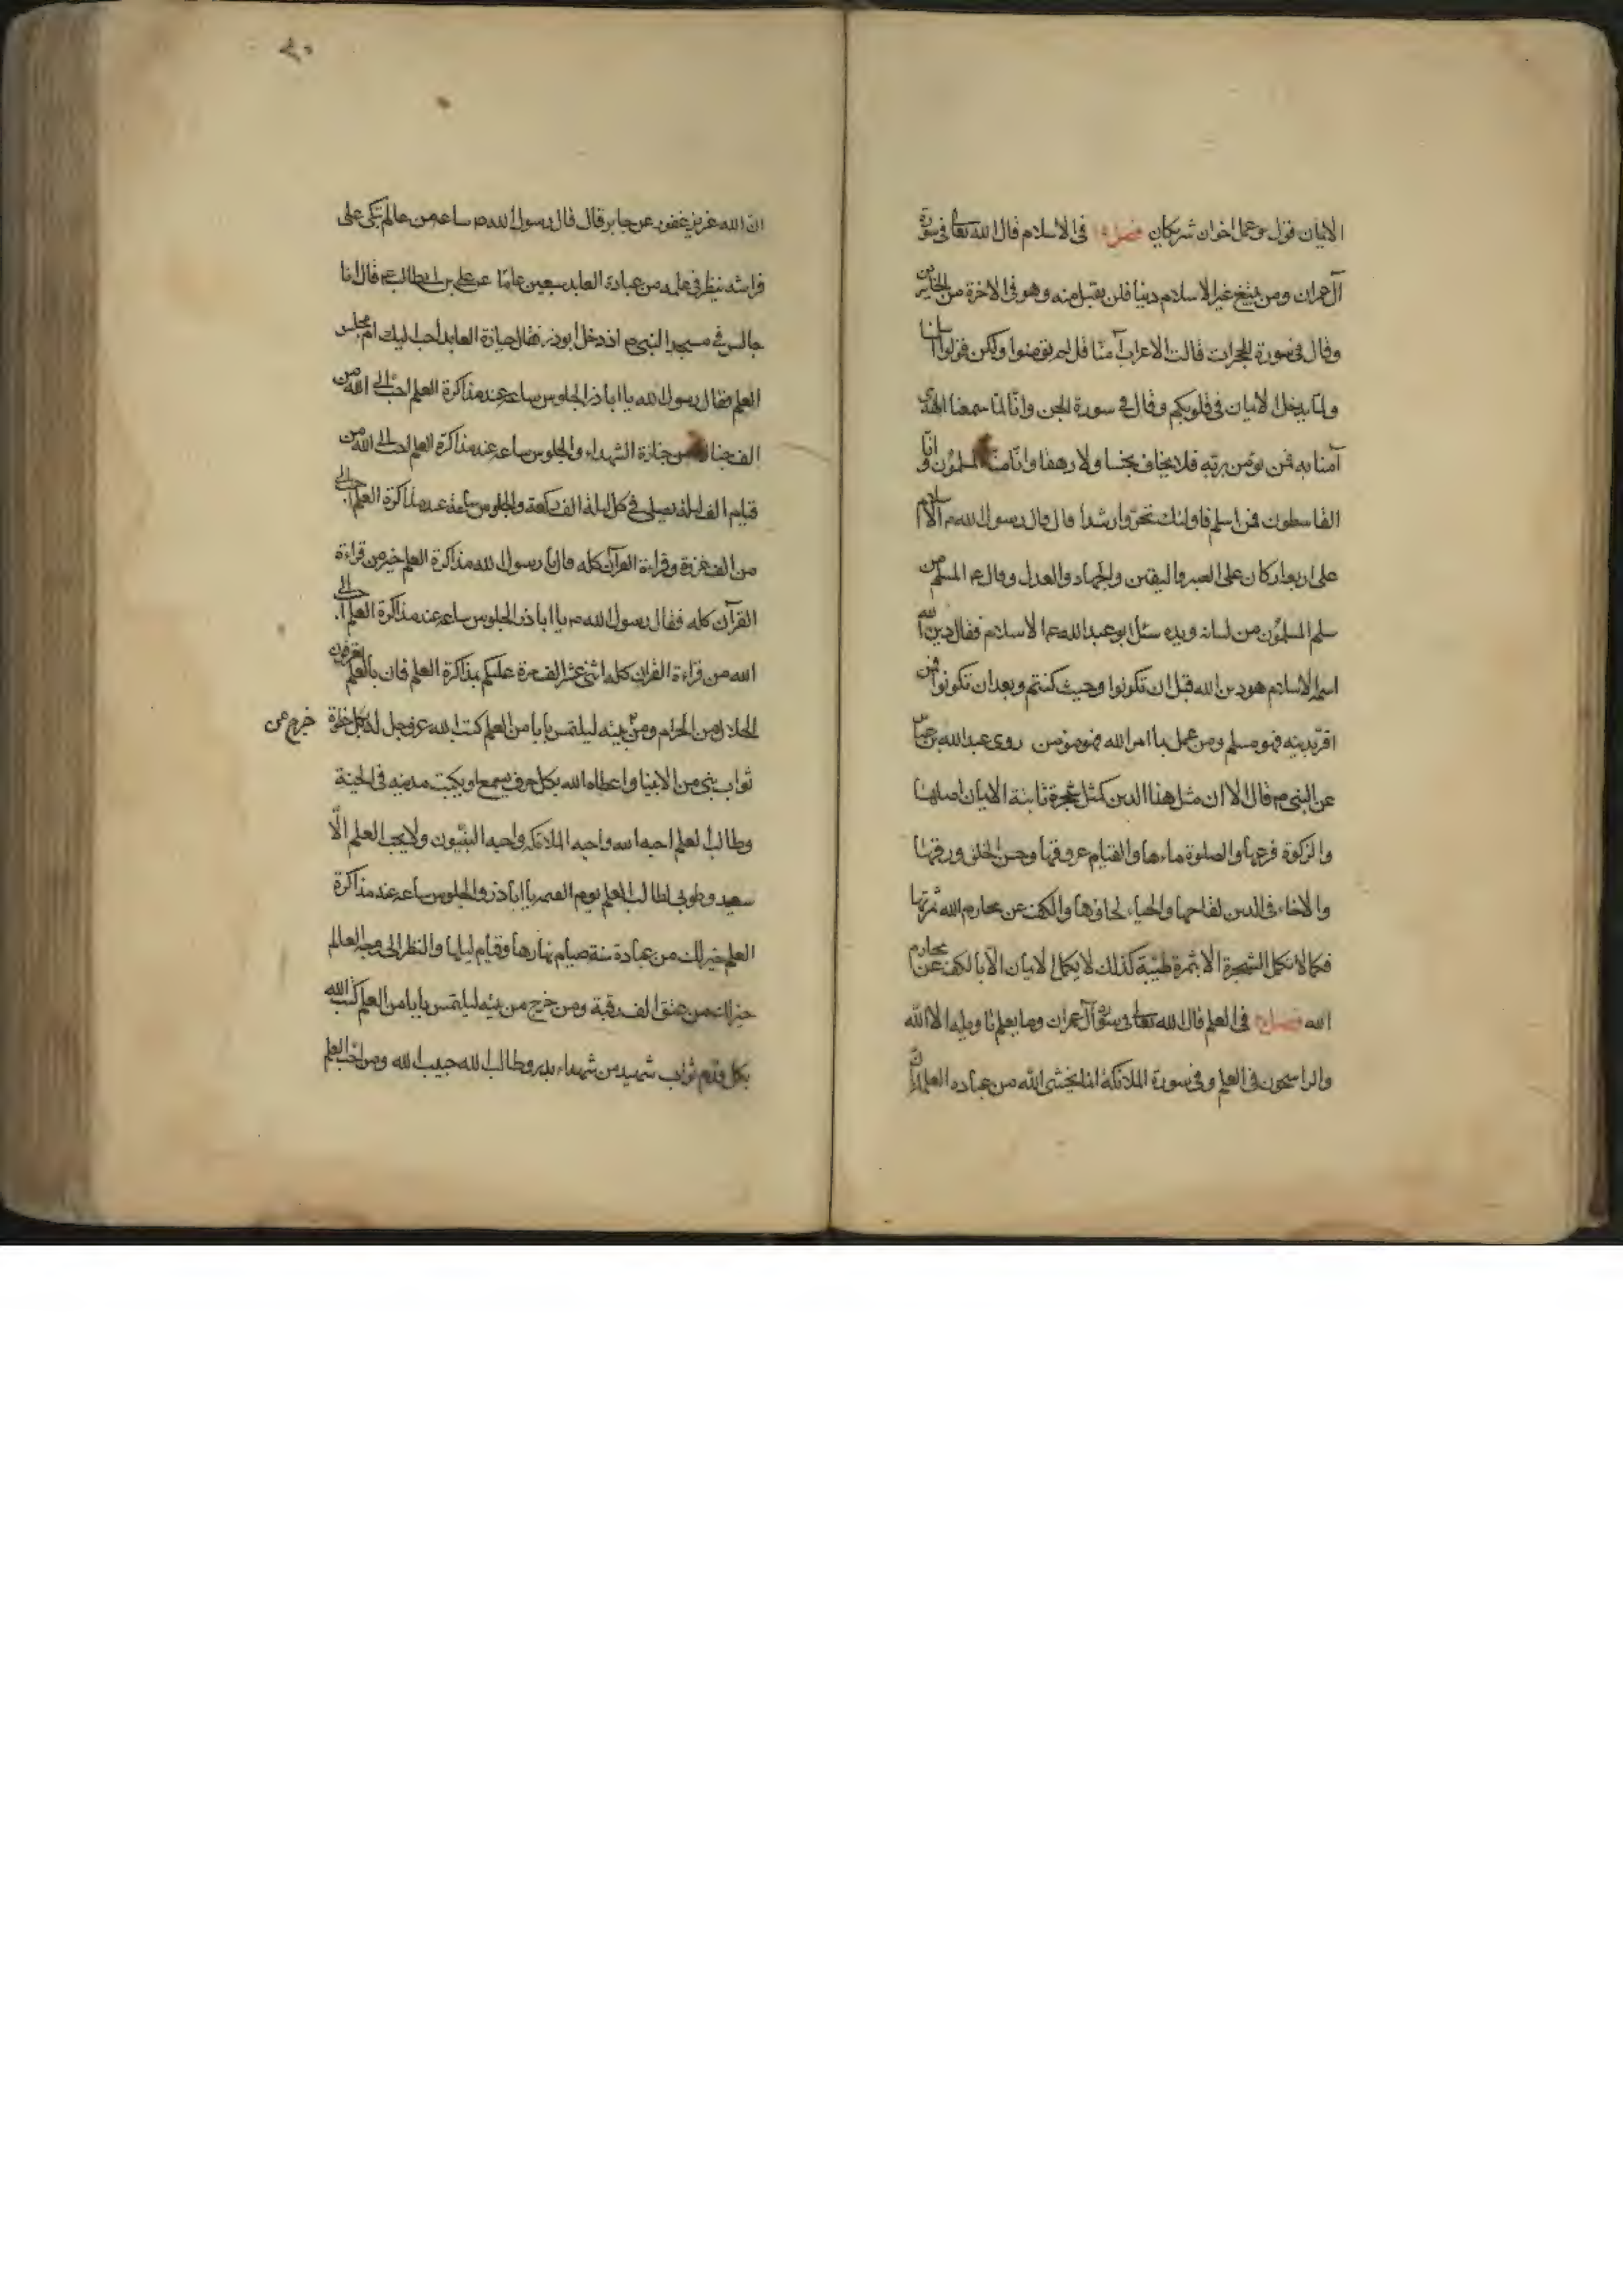 الايمان قول وعمل اخوان شريكان فصل في الاسلام قال الله تعالى في سورة
آل عمران ومن يبتغ غير الاسلام دينا فلن يقبل منه وهو في الاخرة من الخاسرين
وقال في سورة الحجرات قالت الاعراب آمنا قل لم تؤمنوا ولكن قولوا اسلمنا
ولما يدخل الايمان في قلوبكم وقال في سورة الجن وانا لما سمعنا الهدى
آمنا به فمن يؤمن بربه فلا يخاف بخسا ولا رهقا وانا منا المسلمون وانا
القاسطون فمن اسلم فاولئك تحروا رشدا قال قال رسول الله ص الاسلام
على اربع اركان على الصبر واليقين والجهاد والعدل وقال ع المسلم من
سلم المسلمون من لسانه ويده سئل ابو عبد الله عما الاسلام فقال دين الله
اسمه الاسلام هو دين الله قبل ان تكونوا وحيث كنتم وبعد ان تكونوا فمن
اقر بدينه فهو مسلم ومن عمل بما امر الله فهو مؤمن روى عبد الله بن عباس
عن النبي ص قال الا ان مثل هذا الدين كمثل شجرة ثابتة الايمان اصلها
والزكوة فرعها والصلوة ماءها والصيام عروقها وحسن الخلق ورقها
والاخاء في الدين لقاحها والحياء لحاؤها والكف عن محارم الله ثمرتها
فكما لا تكمل الشجرة الا بثمرة طيبة كذلك لا يكمل الايمان الا بالكف عن محارم
الله فصل في العلم قال الله تعالى في سورة آل عمران وما يعلم تأويله الا الله
والراسخون في العلم وفي سورة الملائكة انما يخشى الله من عباده العلماء
ان الله عزيز غفور عن جابر قال قال رسول الله ص ساعة من عالم يتكى على
فراشه ينظر في علمه من عبادة العابد سبعين عاما عن علي بن ابيطالب ع قال انا
جالس في مسجد النبي ص اذ دخل أبوذر فقال جنازة العابد أحب اليك ام مجلس
العلم فقال رسول الله يا اباذر الجلوس ساعة عند مذاكرة العلم احب الى الله من
الف جنازة من جنازة الشهداء والجلوس ساعة عند مذاكرة العلم احب الى الله من
قيام الف ليلة يصلى في كل ليلة الف ركعة والجلوس ساعة عند مذاكرة العلم احب الى
من الف غزوة وقراءة القرآن كله قال يا رسول الله مذاكرة العلم خير من قراءة
القرآن كله فقال رسول الله ص يا اباذر الجلوس ساعة عند مذاكرة العلم احب الى
الله من قراءة القران كله اثنى عشر الف مرة عليكم بمذاكرة العلم فان بالعلم تعرفون
الحلال من الحرام ومن بيته ليلتمس بابا من العلم كتب الله عز وجل له بكل خطوة
خرج من
ثواب نبي من الانبيا واعطاه الله بكل حرف يسمع او يكتب مدينة في الجنة
وطالب العلم احبه الله واحبه الملائكة واحبه النبيون ولا يحب العلم الا
سعيد وطوبى لطالب العلم يوم القيمة يا اباذر والجلوس ساعة عند مذاكرة
العلم خير لك من عبادة سنة صيام نهارها وقيام ليلها والنظر الى وجه العالم
خير لك من عتق الف رقبة ومن خرج من بيته ليلتمس بابا من العلم كتب الله
بكل قدم ثواب شهيد من شهداء بدر وطالب الله حبيب الله ومن احب العلم